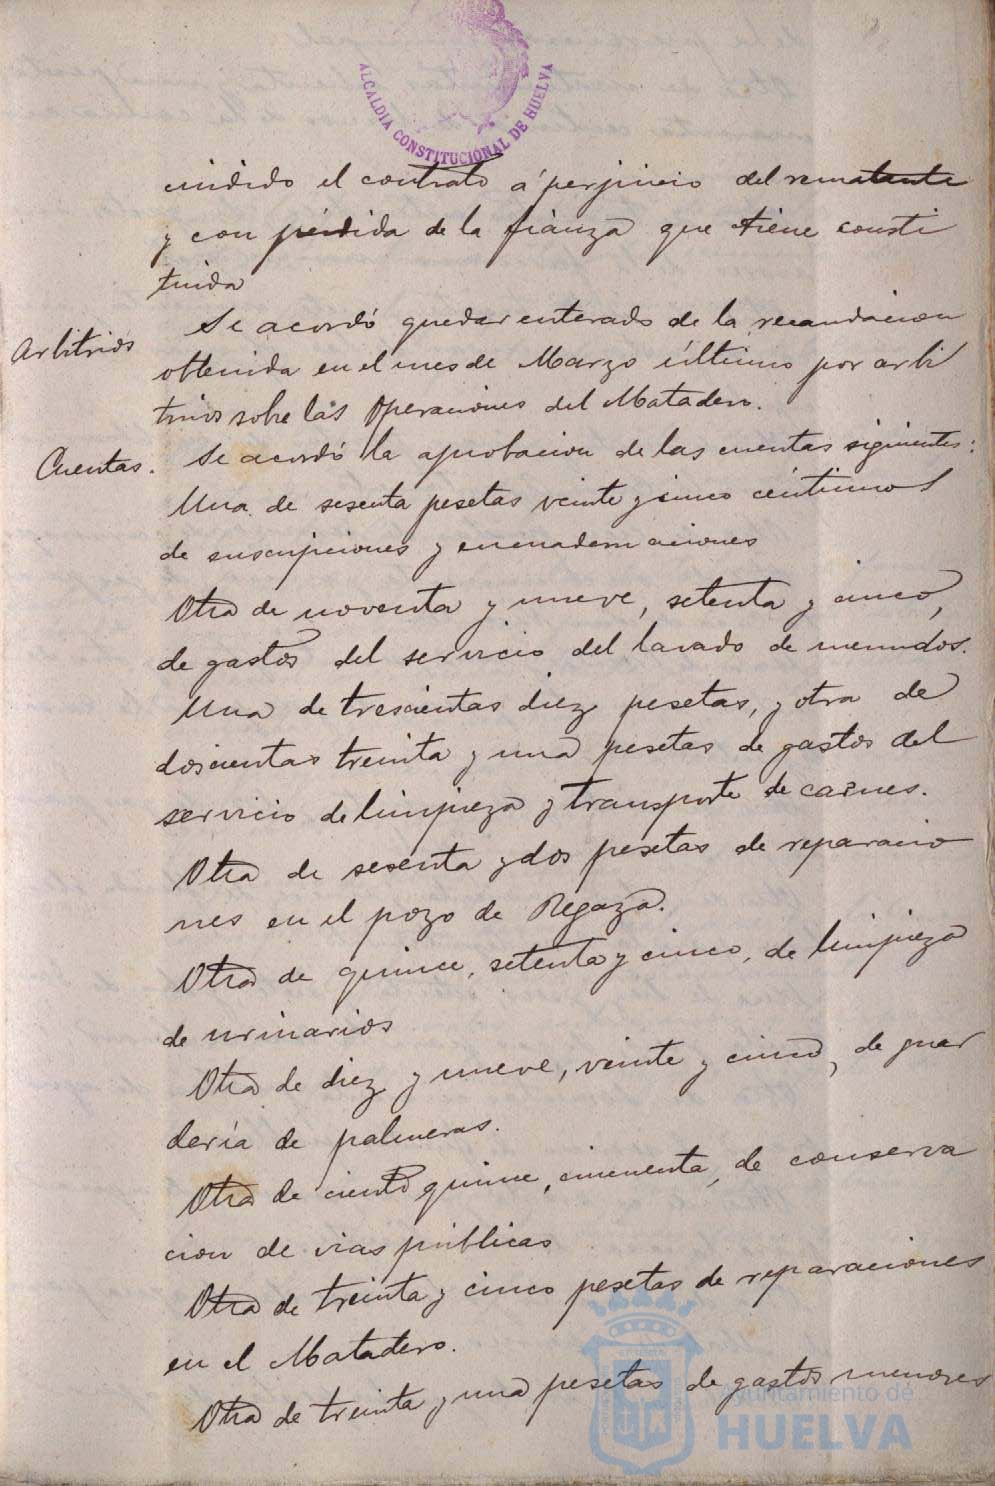 ALCALDIA CONSTITUCIONAL DE HUELVA
cindido el contrato á perjuicio del rematante
y con pérdida de la fianza que tiene consti
tuida
Arbitrios
Se acordó quedar enterado de la recaudacion
obtenida en el mes de Marzo último por arbi
trios sobre las Operaciones del Matadero.
Cuentas.
Se acordó la aprobacion de las cuentas siguientes:
Una de sesenta pesetas veinte y cinco céntimos
de suscripciones y encuadernaciones
Otra de noventa y nueve, setenta y cinco,
de gastos del servicio del lavado de menudos.
Una de trescientas diez pesetas, y otra de
doscientas treinta y una pesetas de gastos del
servicio de limpieza y transporte de carnes.
Otra de sesenta y dos pesetas de reparacio
nes en el pozo de Regaza.
Otra de quince, setenta y cinco, de limpieza
de urinarios
Otra de diez y nueve, veinte y cinco, de guar
dería de palmeras.
Otra de ciento quince, cincuenta, de conserva
cion de vias públicas
Otra de treinta y cinco pesetas de reparaciones
en el Matadero.
Otra de treinta y una pesetas de gastos menores
Ayuntamiento de
HUELVA